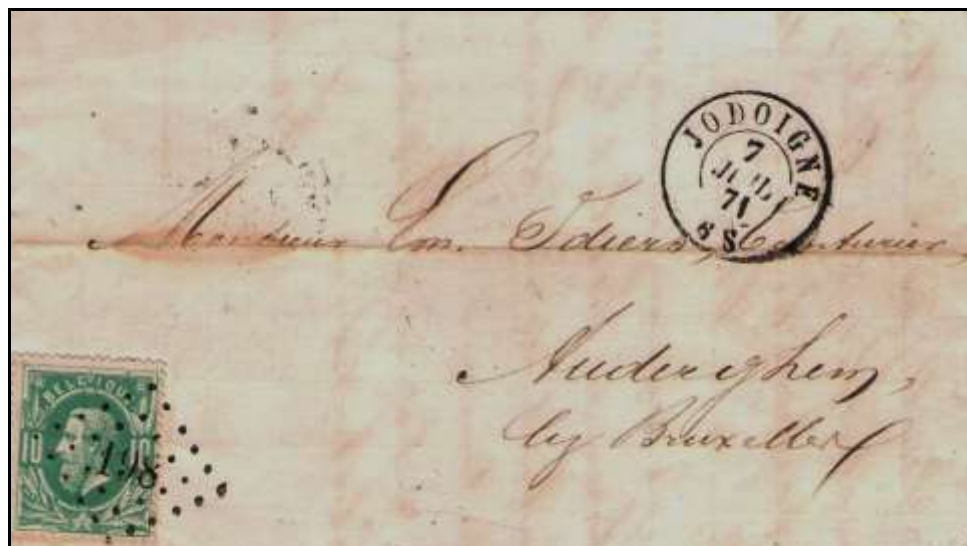 JODOIGNE
7
JUIL
71
6 S
Monsieur Em. Idiers, Teinturier,
Auderghem,
lez Bruxelles
BELGIQUE
10 10
198